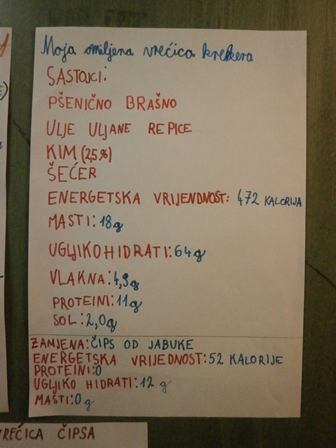 Moja omiljena vrećica krekera
SASTOJCI:
PŠENIČNO BRAŠNO
ULJE ULJANE REPICE
KIM (2,5%)
ŠEĆER
ENERGETSKA VRIJENDNOST: 472 KALORIJA
MASTI: 18g
UGLJIKOHIDRATI: 64g
VLAKNA: 4,3g
PROTEINI: 11g
SOL: 2,0g
ZAMJENA: ČIPS OD JABUKE
ENERGETSKA VRIJEDNOST: 52 KALORIJE
PROTEINI: 0
UGLJIKO HIDRATI: 12 g
MASTI: 0g
VREĆICA ČIPSA